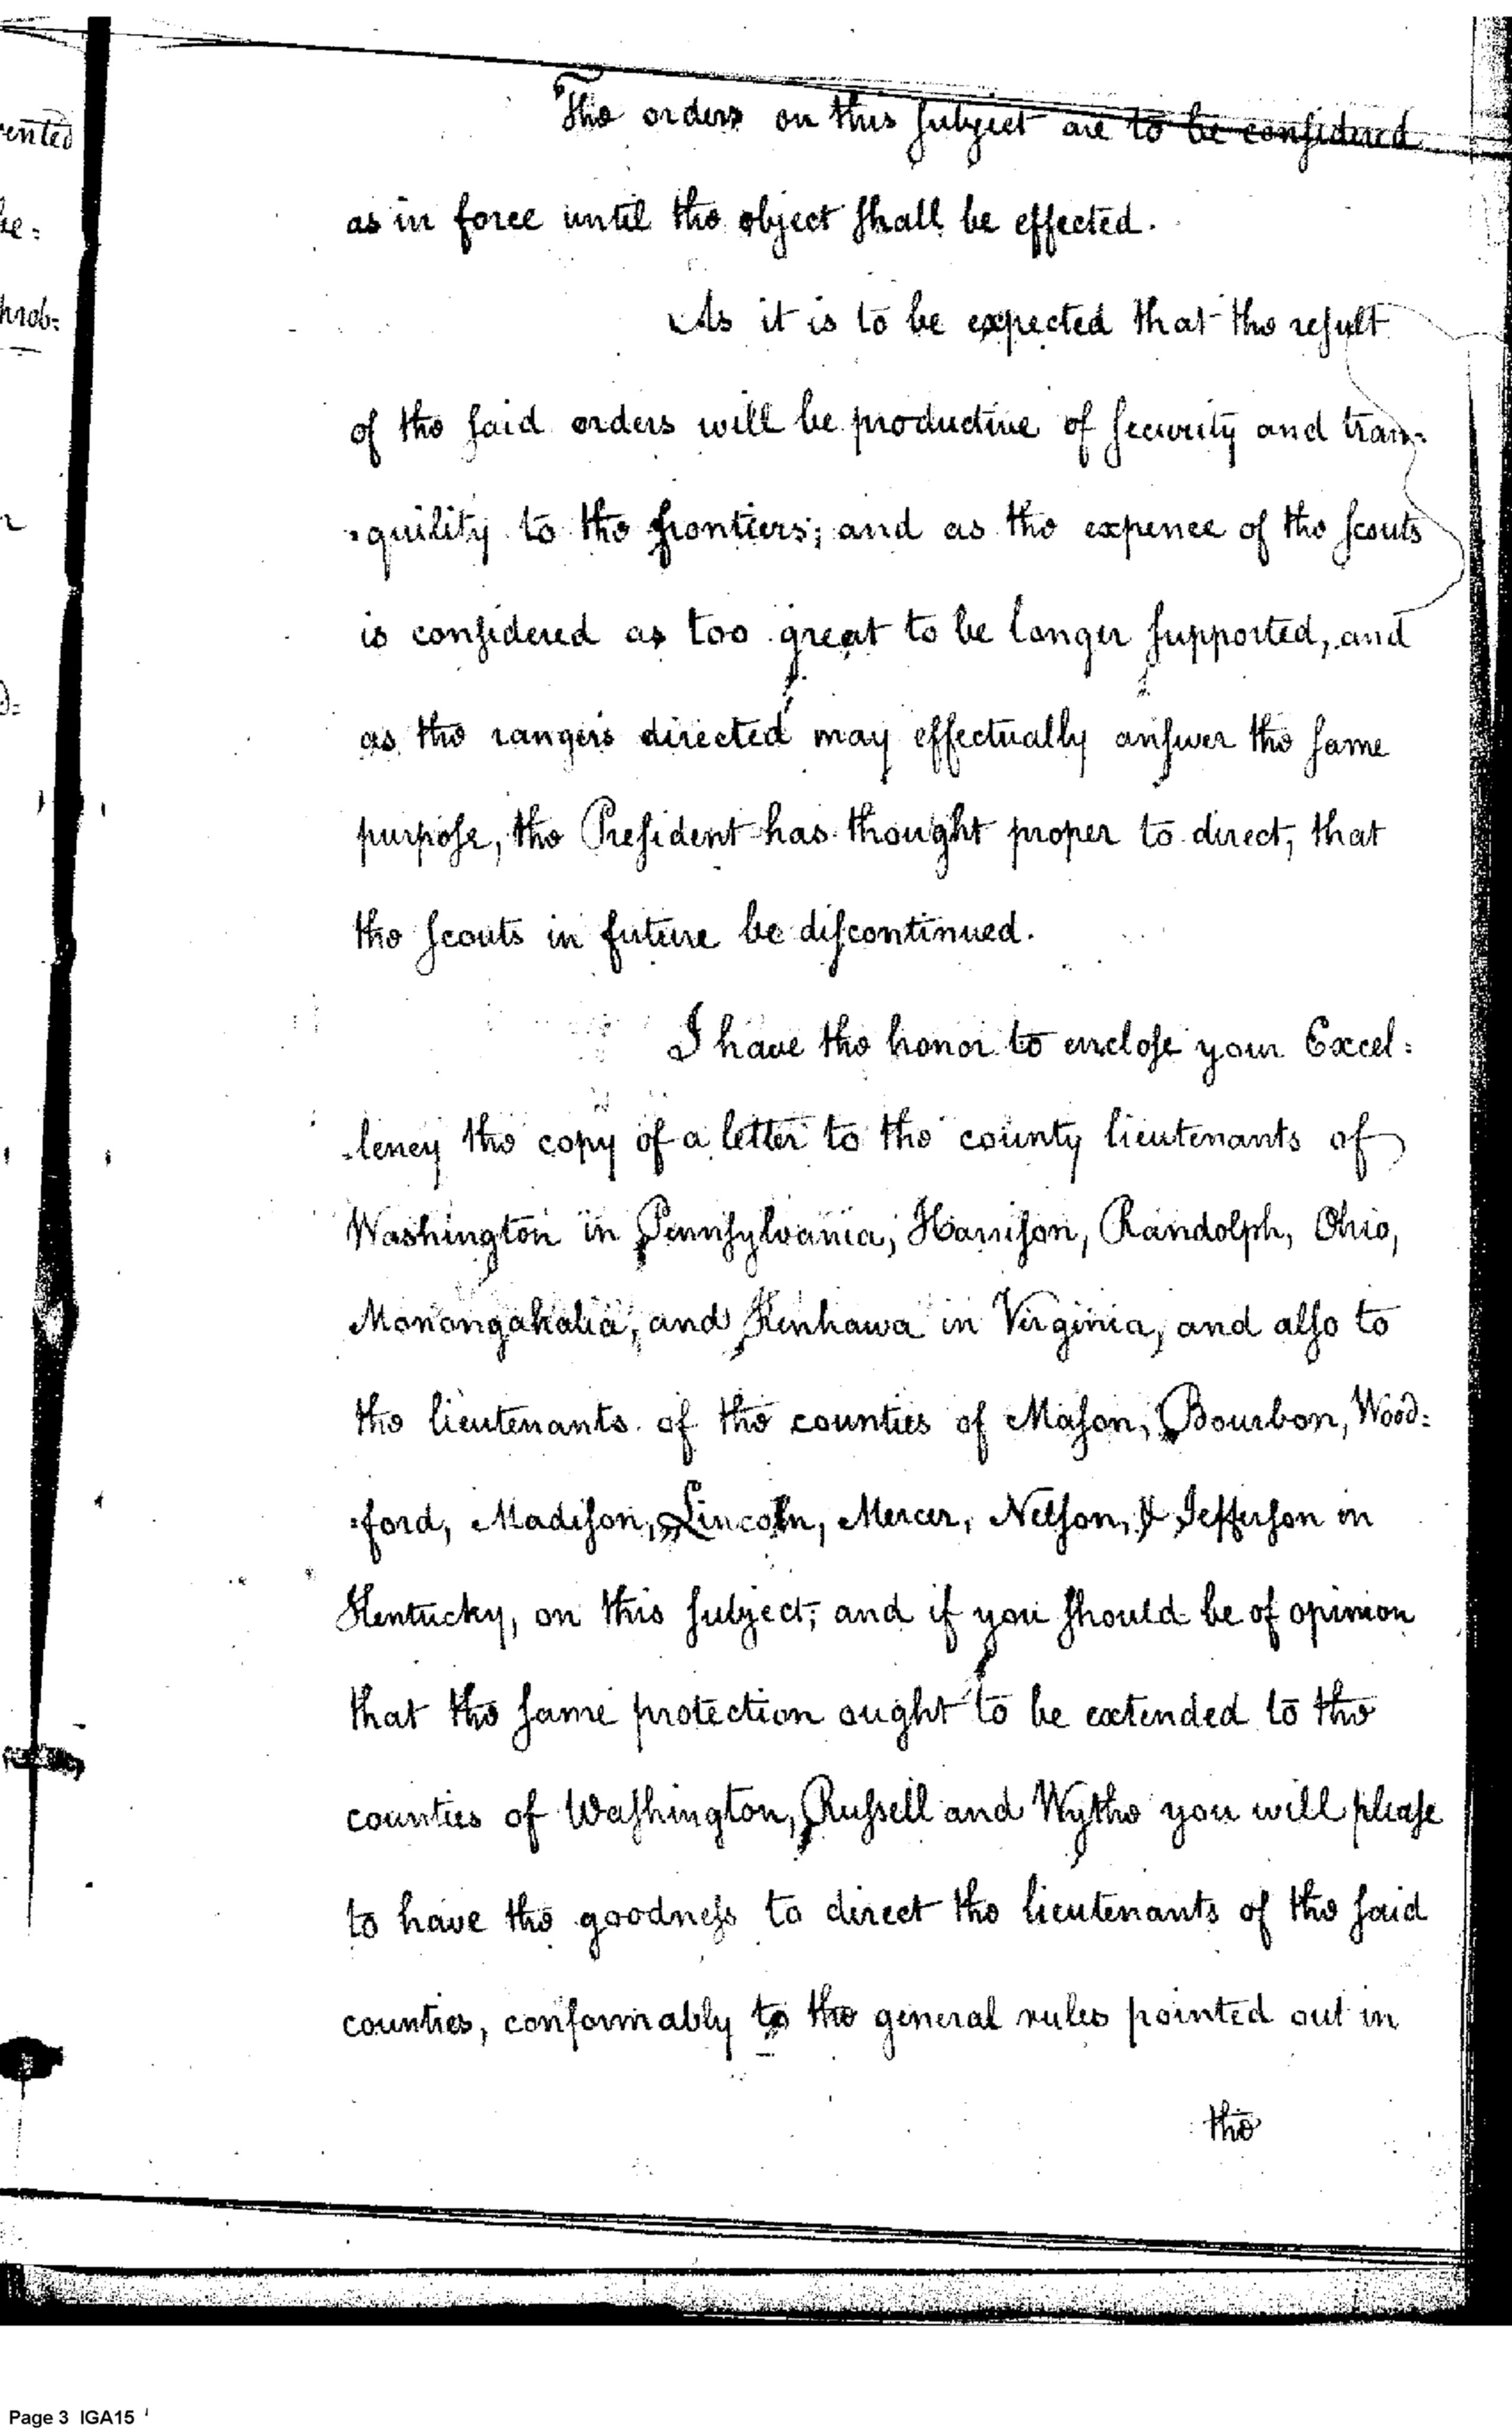 ented
be:
hrob:
The orders on this subject are to be considered
as in force until the object shall be effected.
As it is to be expected that the result
of the said orders will be productive of security and tran-
-quility to the frontiers; and as the expence of the scouts
is considered as too great to be longer supported, and
as the rangers directed may effectually answer the same
purpose, the President has thought proper to direct, that
the scouts in future be discontinued.
I have the honor to enclose your Excel:
-lency the copy of a letter to the county lieutenants of
Washington in Pennsylvania, Harrison, Randolph, Ohio,
Monongahalia, and Kenhawa in Virginia, and also to
the lieutenants of the counties of Mason, Bourbon, Wood:
:ford, Madison, Lincoln, Mercer, Nelson, & Jefferson in
Kentucky, on this subject; and if you should be of opinion
that the same protection ought to be extended to the
counties of Washington, Russell and Wythe you will please
to have the goodness to direct the lieutenants of the said
counties, conformably to the general rules pointed out in
the
Page 3 IGA15